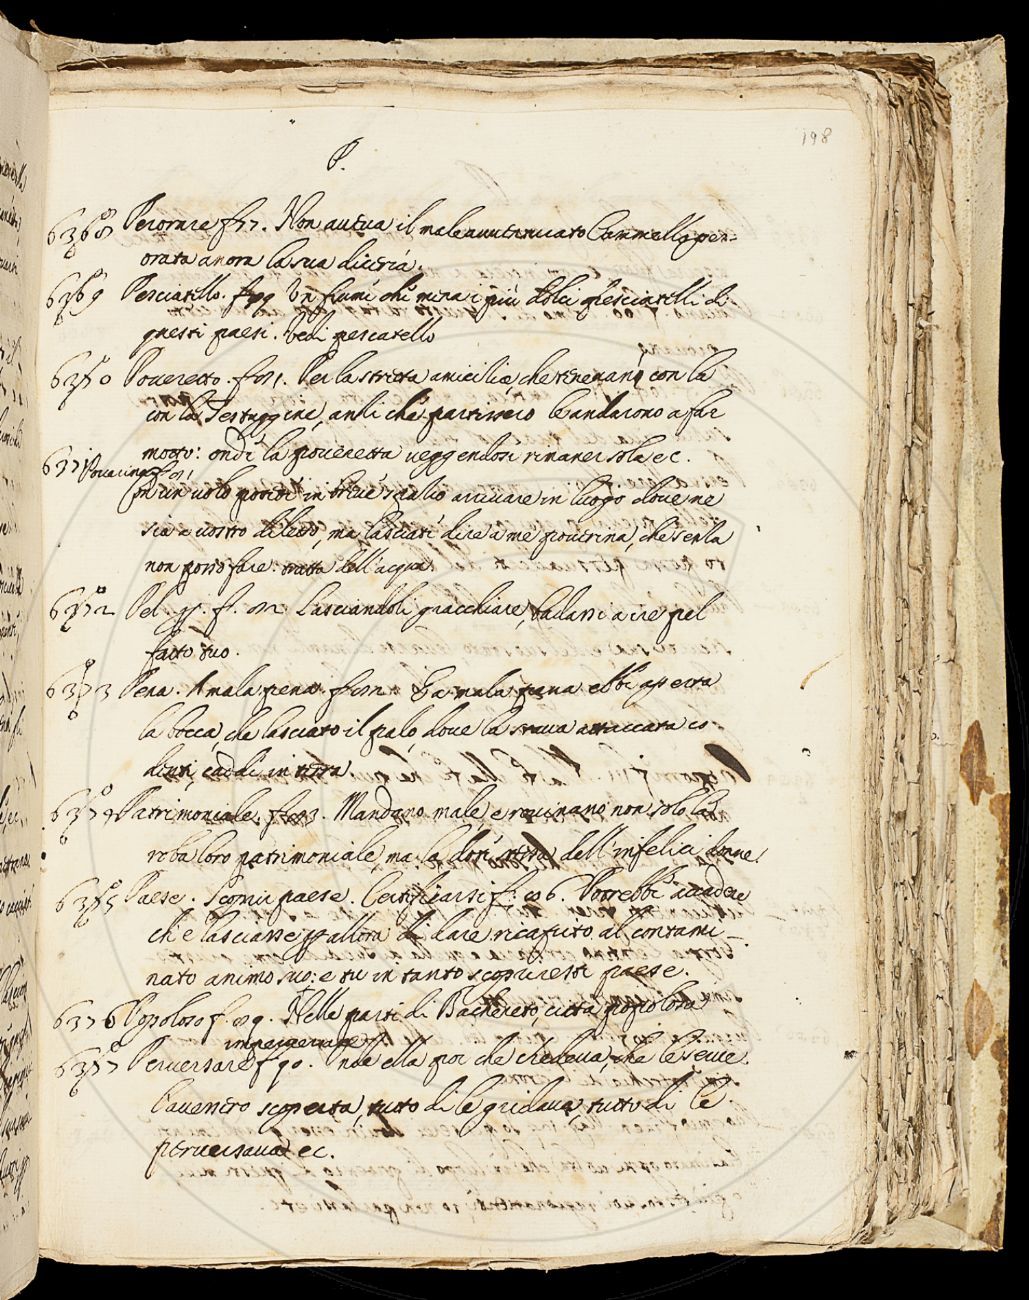 198
P.
6368 Perorare f 77. Non aveva il malavventurato Cammello per-
orata ancora la sua diceria.
6369 Pesciatello. f 79 Un fiume che mena i più dolci pesciatelli di
questi paesi. Vedi pescatello
6370 Poveretto. f 81. Per la stretta amicizia che tenevano con la
con la Testuggine, anzi che partissero le andarono a far
motto: onde la poveretta veggendosi rimaner sola ec.
6371 Poverina f 81
in un volo potete in breve spazio arrivare in luogo dove ne
sia a vostro diletto, ma lasciate dire a me poverina, che senza
non posso fare: tratta dell'acqua.
6372 Pel. f. 82. Lasciandoli gracchiare, badassi a ire pel
fatto suo.
6373 Pena. A mala pena. f 82. E a mala pena ebbe aperta
la bocca, che lasciato il palo, dove la stava attaccata co
denti, cadde in terra.
6374 Patrimoniale. f 83. Mandano male e rovinano non solo la
roba loro patrimoniale, ma la dell'infelici donne.
6375 Paese. Scoprir paese. Certificarsi f. 86. Potrebbe accadere
che lasciasse allora di dare ricapito al contami-
nato animo suo: e tu in tanto scopriresti paese.
6376 Popoloso f. 89. Nelle parti di Bachereto, città popolosa
imperversare
6377 Perversare f 90. ella poi che credeva, che le serve
l'avessero scoperta, tutto dì le gridava, tutto dì le
perversava ec.